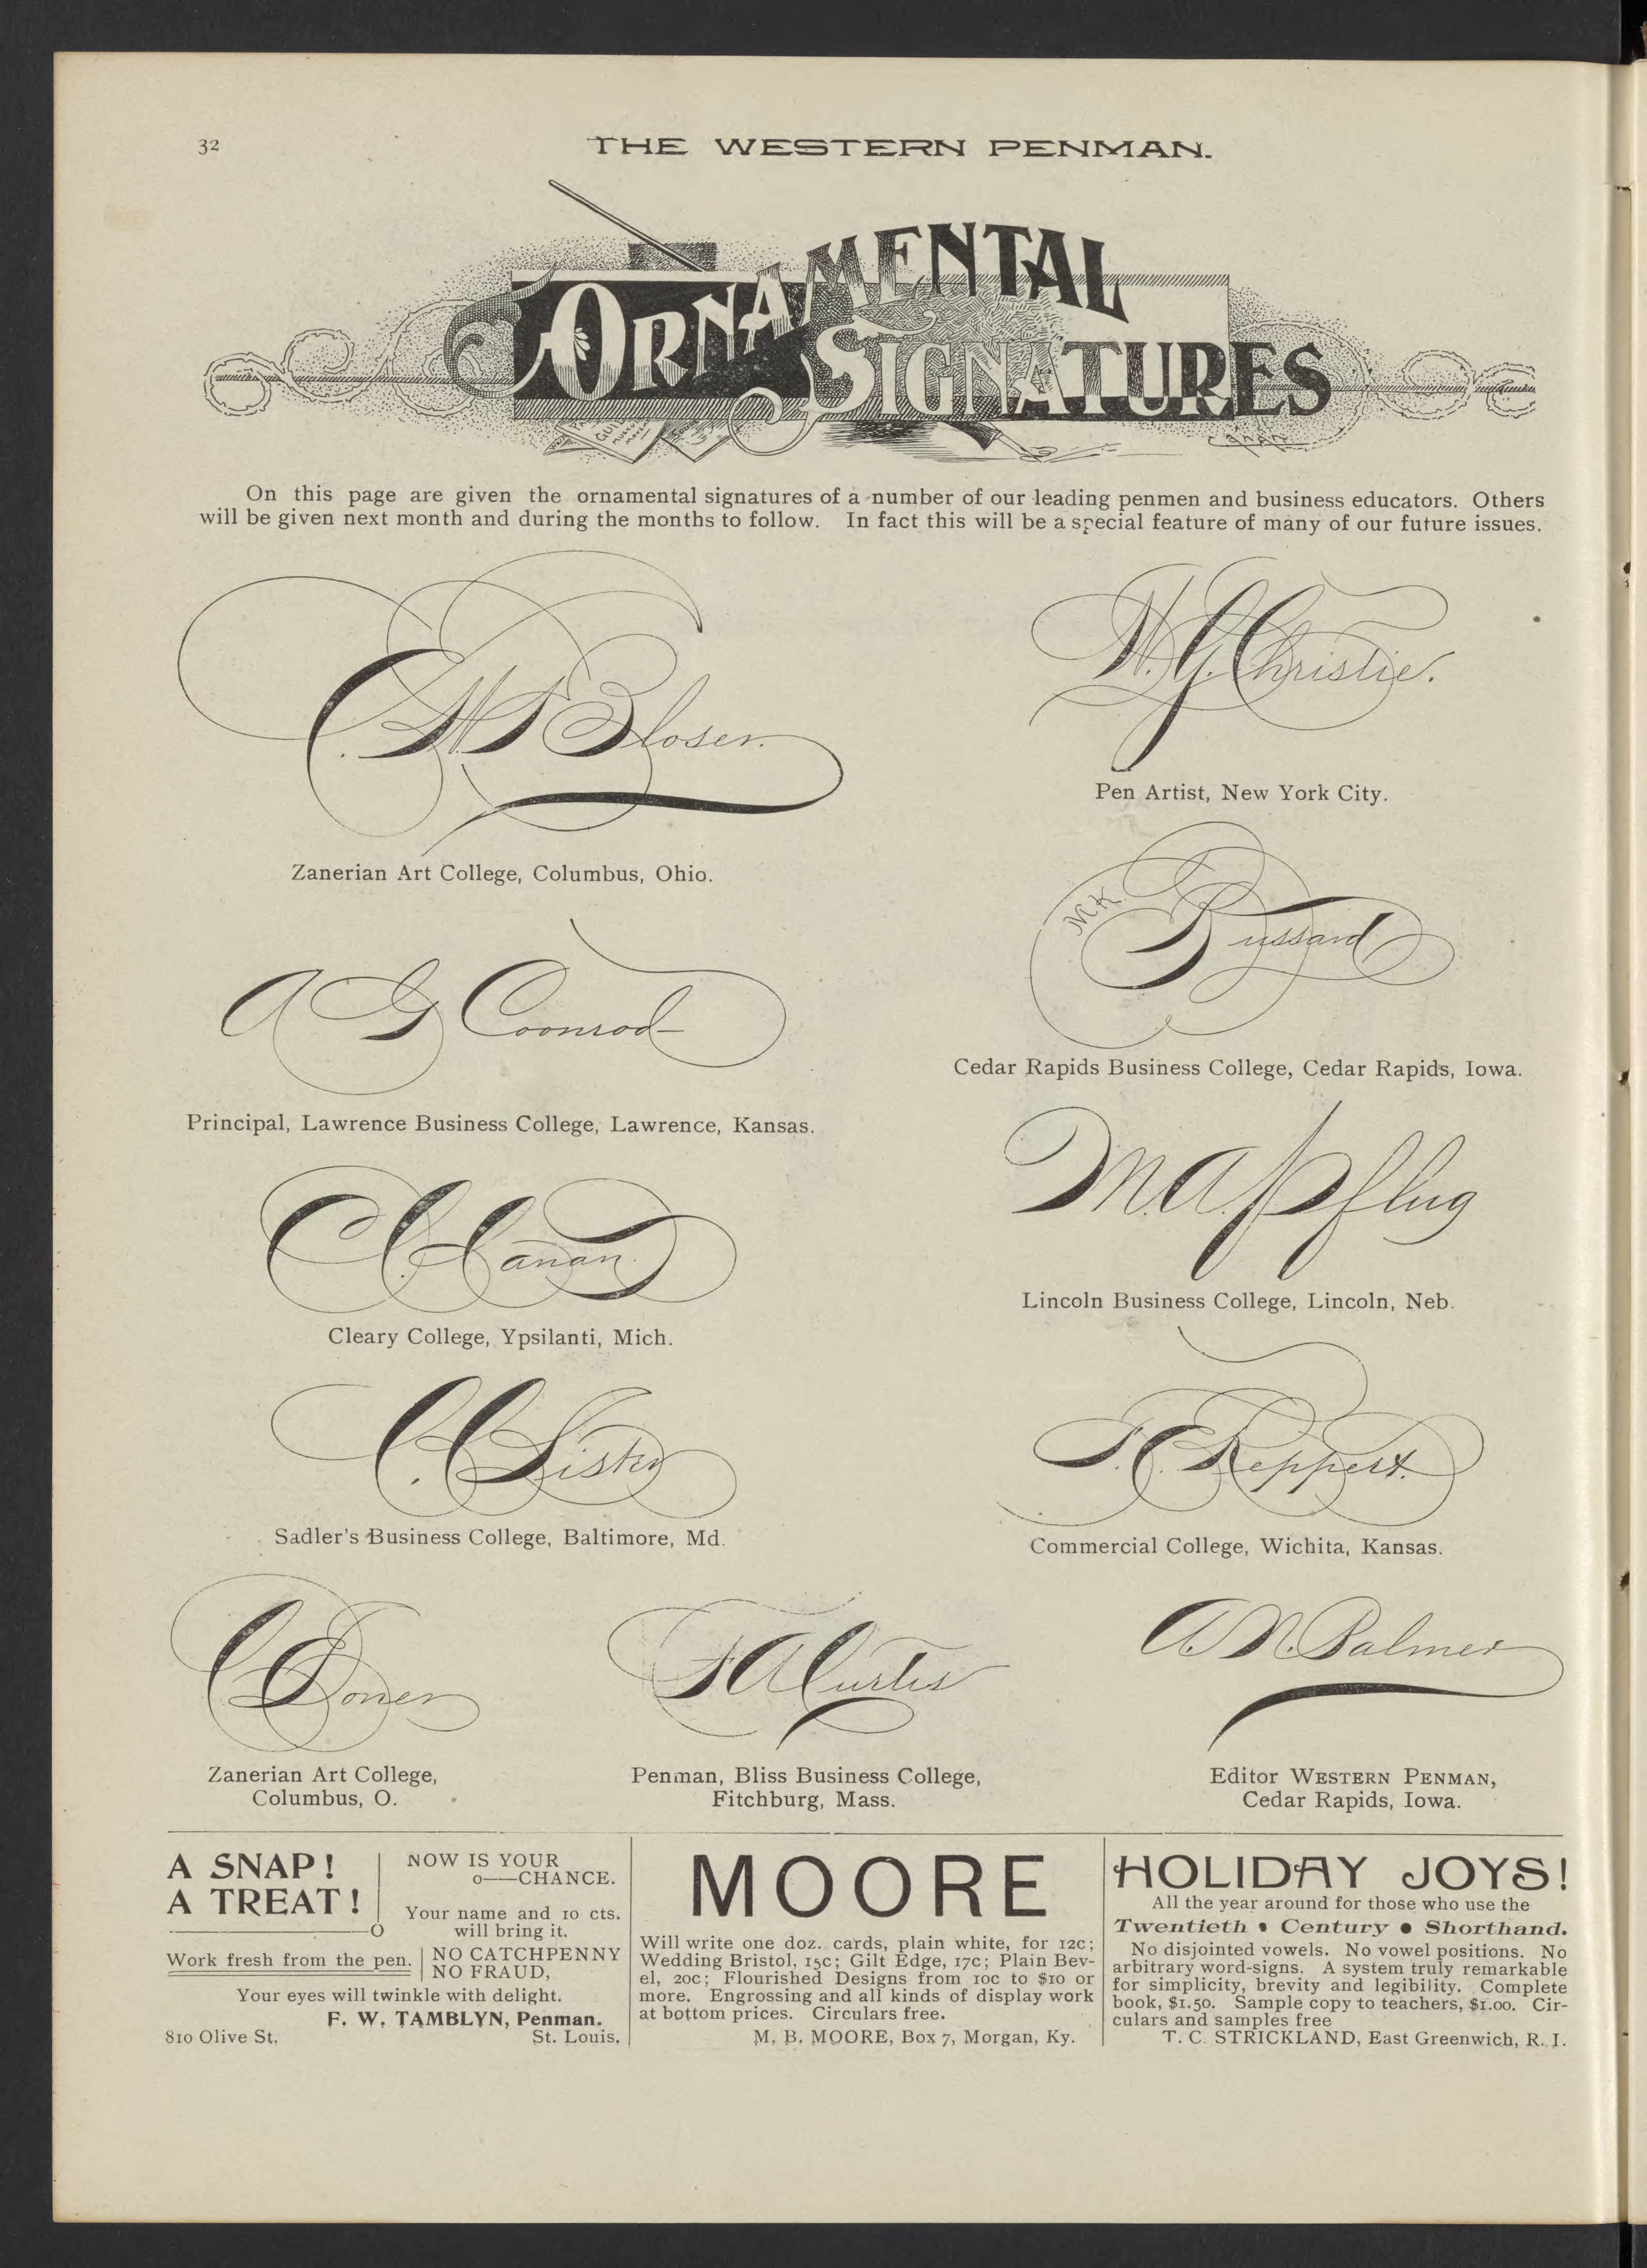 32
THE WESTERN PENMAN.
ORNAMENTAL
SIGNATURES
On this page are given the ornamental signatures of a number of our leading penmen and business educators. Others
will be given next month and during the months to follow. In fact this will be a special feature of many of our future issues.
Bloser.
Zanerian Art College, Columbus, Ohio.
Christie.
Pen Artist, New York City.
A G Coonrod
Principal, Lawrence Business College, Lawrence, Kansas.
M.K. Bussard
Cedar Rapids Business College, Cedar Rapids, Iowa.
C. C. Canan.
Cleary College, Ypsilanti, Mich.
M.A. Pflug
Lincoln Business College, Lincoln, Neb.
C. C. Lister
Sadler's Business College, Baltimore, Md.
Reppert.
Commercial College, Wichita, Kansas.
C E Doner
Zanerian Art College,
Columbus, O.
F A Curtis
Penman, Bliss Business College,
Fitchburg, Mass.
A. N. Palmer
Editor WESTERN PENMAN,
Cedar Rapids, Iowa.
A SNAP!
A TREAT!
NOW IS YOUR
o——CHANCE.
Your name and 10 cts.
will bring it.
Work fresh from the pen.
NO CATCHPENNY
NO FRAUD,
Your eyes will twinkle with delight.
F. W. TAMBLYN, Penman.
810 Olive St. St. Louis.
MOORE
Will write one doz. cards, plain white, for 12c;
Wedding Bristol, 15c; Gilt Edge, 17c; Plain Bev-
el, 20c; Flourished Designs from 10c to $10 or
more. Engrossing and all kinds of display work
at bottom prices. Circulars free.
M. B. MOORE, Box 7, Morgan, Ky.
HOLIDAY JOYS!
All the year around for those who use the
Twentieth • Century • Shorthand.
No disjointed vowels. No vowel positions. No
arbitrary word-signs. A system truly remarkable
for simplicity, brevity and legibility. Complete
book, $1.50. Sample copy to teachers, $1.00. Cir-
culars and samples free
T. C. STRICKLAND, East Greenwich, R. I.